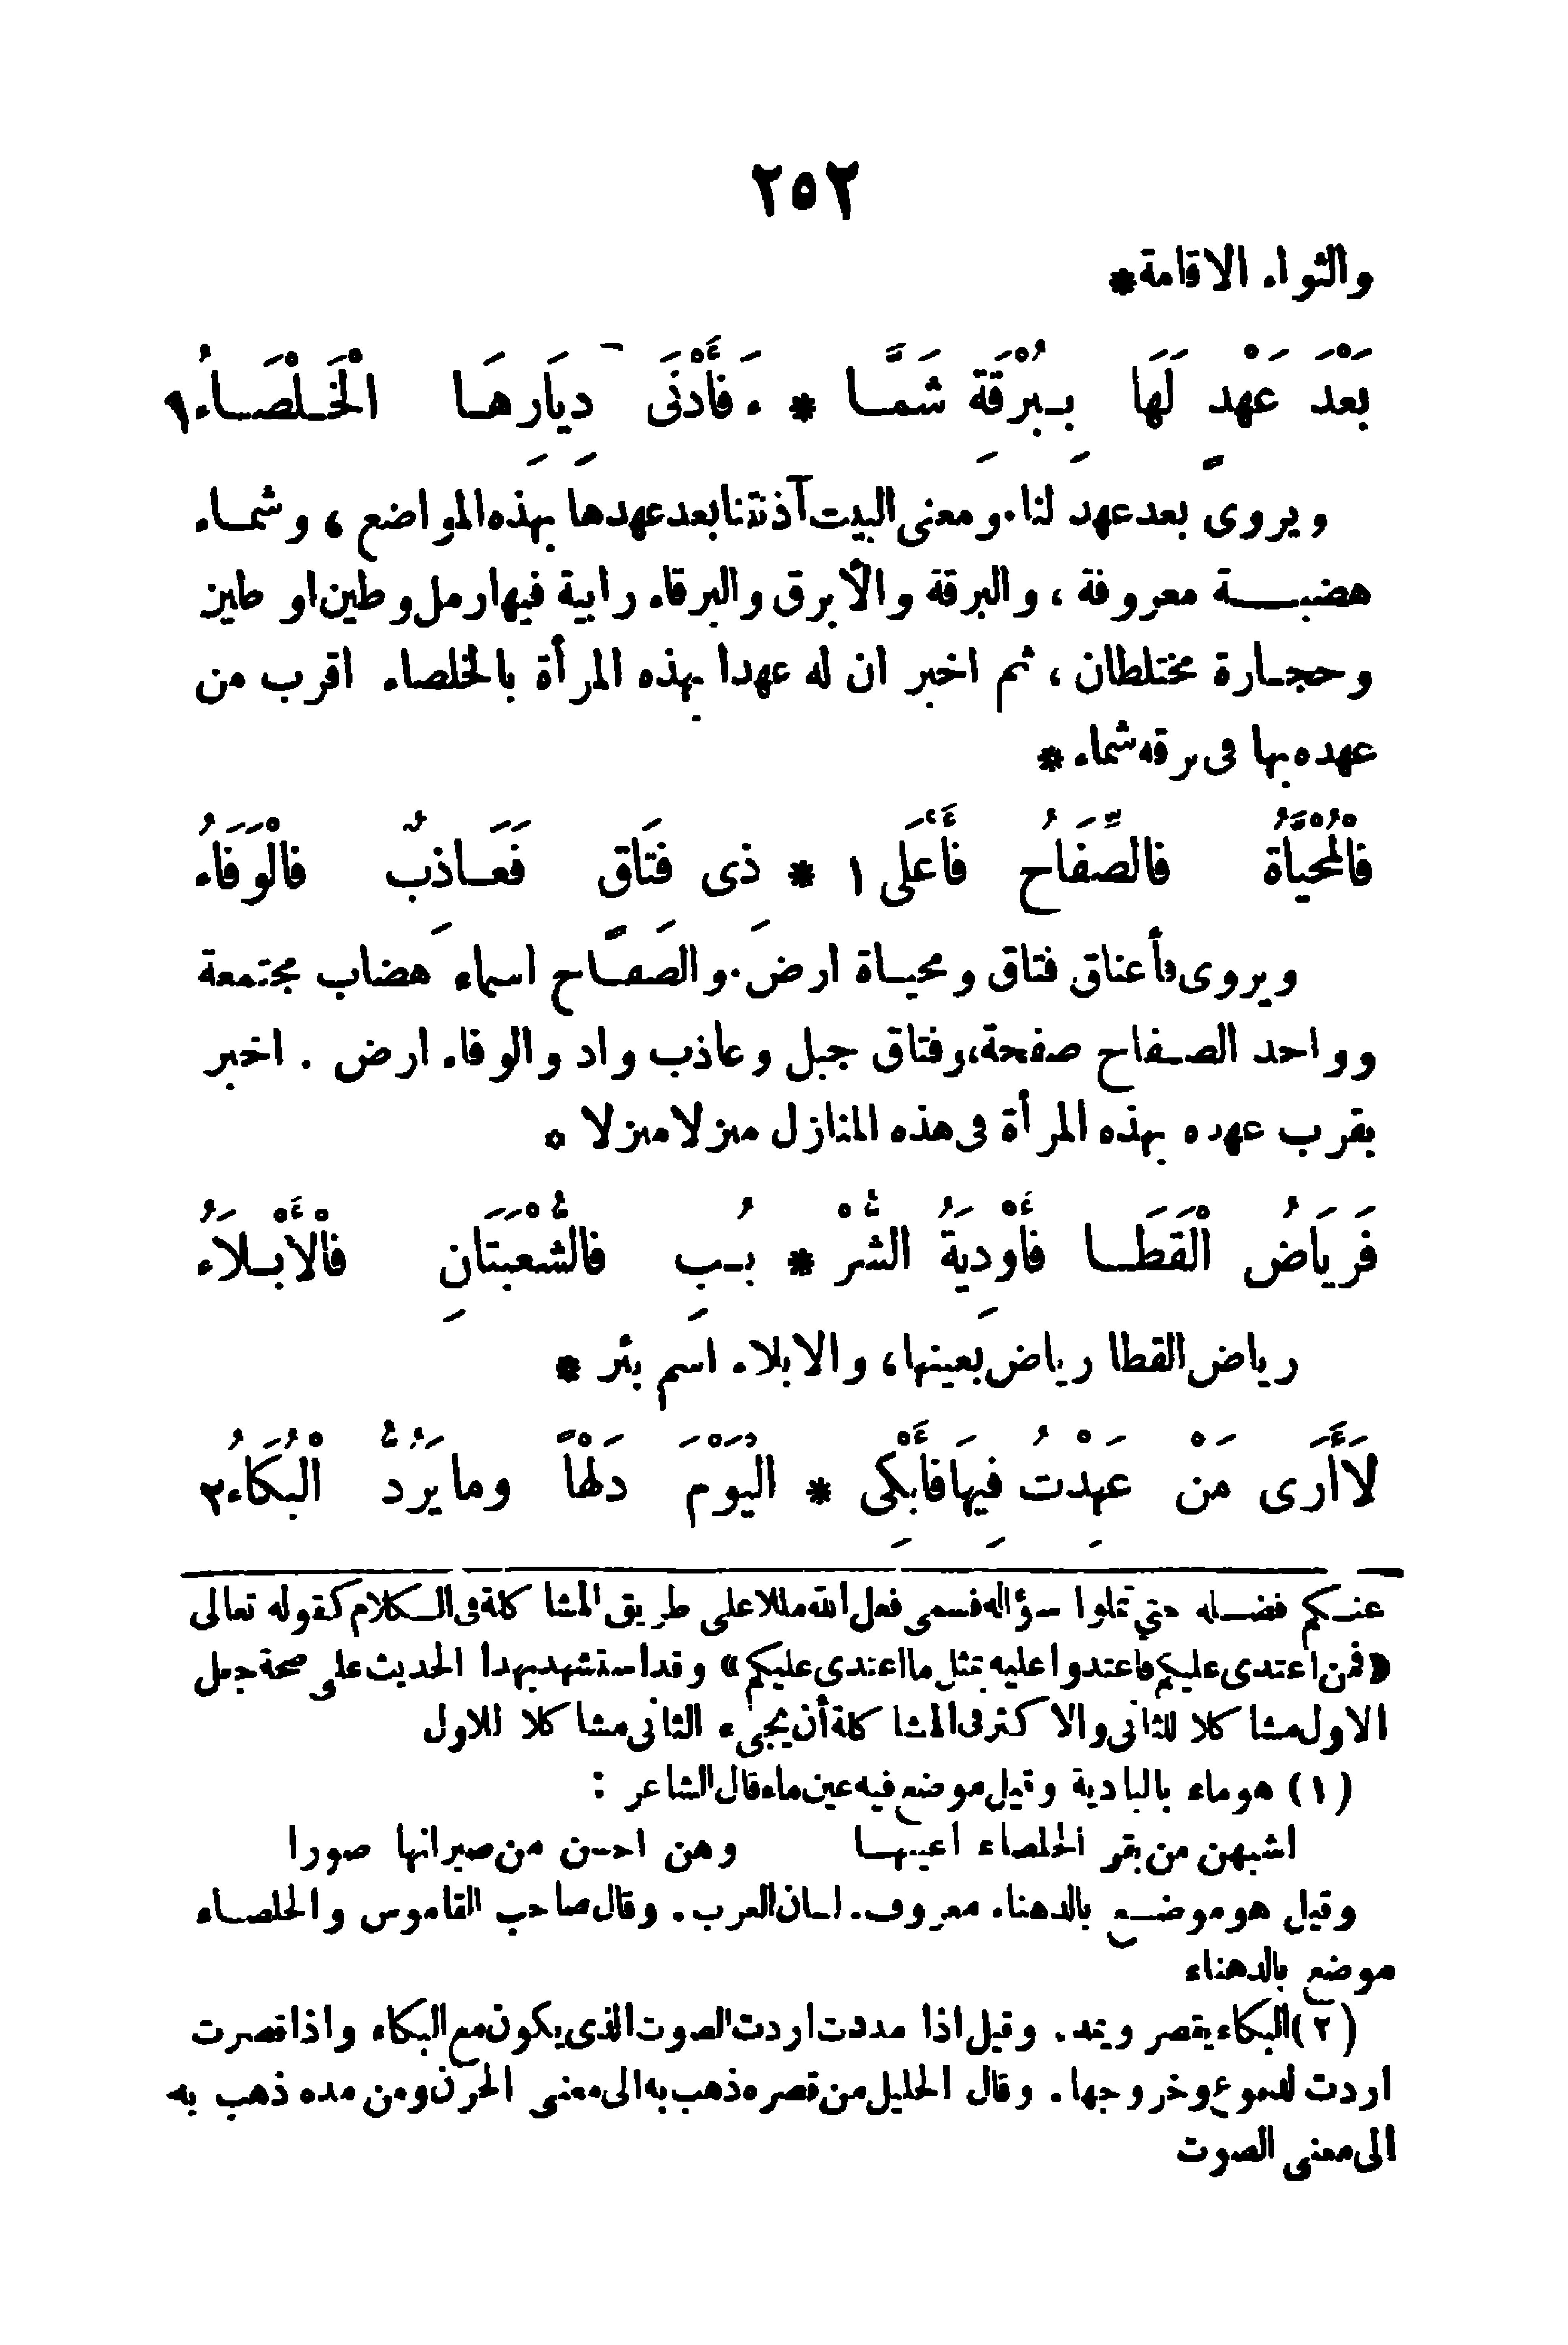 ٢٥٢
والثواء الاقامة*
بَعْدَ عَهْدٍ لَهَا بِبُرْقَةِ شَمَّا * ءَ فَأَدْنَى دِيَارِهَا الْخَلْصَاءُ١
ويروى بعد عهد لنا. ومعنى البيت آذنتنا بعد عهدها بهذه المواضع ، وشماء
هضبة معروفة ، والبرقة والأبرق والبرقاء رابية فيها رمل وطين او طين
وحجارة مختلطان ، ثم اخبر ان له عهدا بهذه المرأة بالخلصاء اقرب من
عهده بها فى برقه شماء *
فَالْمُحْيَّاةُ فالصِّفَاحُ فَأَعْلَى ا * ذى فَتَاقٍ فَعَاذِبٌ فالْوَفَاءُ
ويروى فأعناق فتاق ومحياة ارض. والصفاح اسماء هضاب مجتمعة
وواحد الصفاح صفحة، وفتاق جبل وعاذب واد والوفاء ارض . اخبر
بقرب عهده بهذه المرأة فى هذه المنازل منزلا منزلا *
فَرِيَاضُ الْقَطَا فأَوْدِيَةُ الشُّرْ * بُبِ فالشُّعْبَتَانِ فالْأَبْلاَءُ
رياض القطا رياض بعينها، والابلاء اسم بئر *
لاَ أَرَى مَنْ عَهِدْتُ فِيهَا فَأَبْكِى * الْيَوْمَ دَلْهًا وما يَرُدُّ الْبُكَاءُ٢
عنكم فضله حتي تملوا سؤاله فسمى فعل الله مللا على طريق المشاكلة فى الكلام كقوله تعالى
«فمن اعتدى عليكم فاعتدوا عليه بمثل ما اعتدى عليكم» وقد استشهد بهدا الحديث على صحة جعل
الاول مشاكلا للثانى والاكثر فى المشاكلة أن يجىء الثانى مشاكلا للاول
(١) هو ماء بالبادية وقيل موضع فيه عين ماء قال الشاعر :
اشبهن من بقر الخلصاء اعينها وهن احسن من صيرانها صورا
وقيل هو موضع بالدهناء معروف. لسان العرب. وقال صاحب القاموس والخلصاء
موضع بالدهناء
(٢) البكاء يقصر ويمد. وقيل اذا مددت اردت الصوت الذى يكون مع البكاء واذا قصرت
اردت الدموع وخروجها. وقال الخليل من قصره ذهب به الى معنى الحزن ومن مده ذهب به
الى معنى الصوت